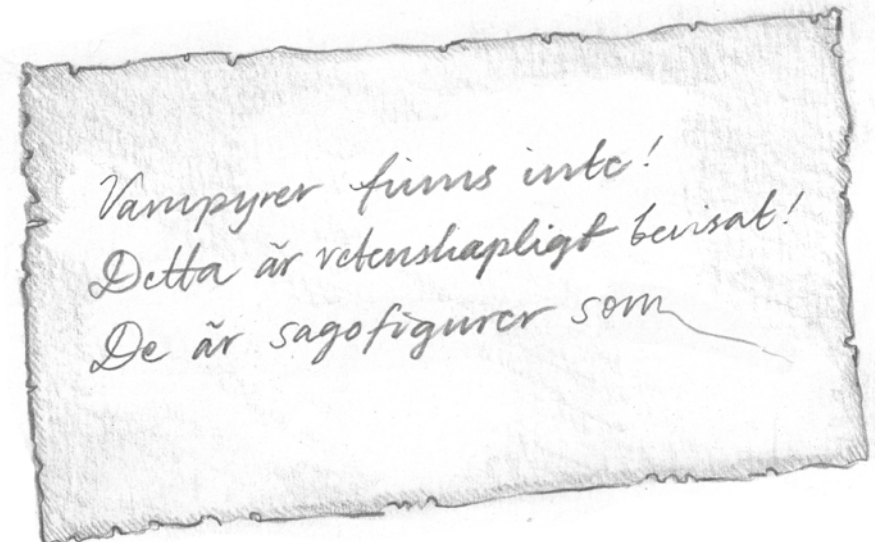 Vampyrer finns inte!
Detta är vetenskapligt bevisat!
De är sagofigurer som